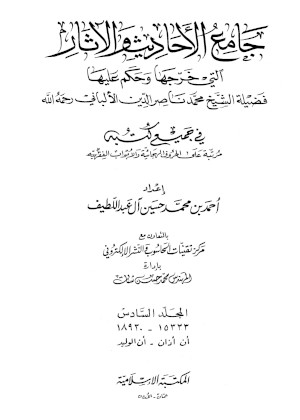 جامع الأحاديث والآثار
التي خرجها وحكم عليها
فضيلة الشيخ محمد ناصر الدين الألباني رحمه الله
في جميع كتبه
مرتبة على الحروف الهجائية والأبواب الفقهية
إعداد
أحمد بن محمد حسين آل عبد اللطيف
بالتعاون مع
مركز تقنيات الحاسوب للنشر الإلكتروني
بإدارة
المهندس محمد حسن
المجلد السادس
١٥٣٣٣ - ١٨٩٣٠
أن أذان - أن الوليد
المكتبة الإسلامية